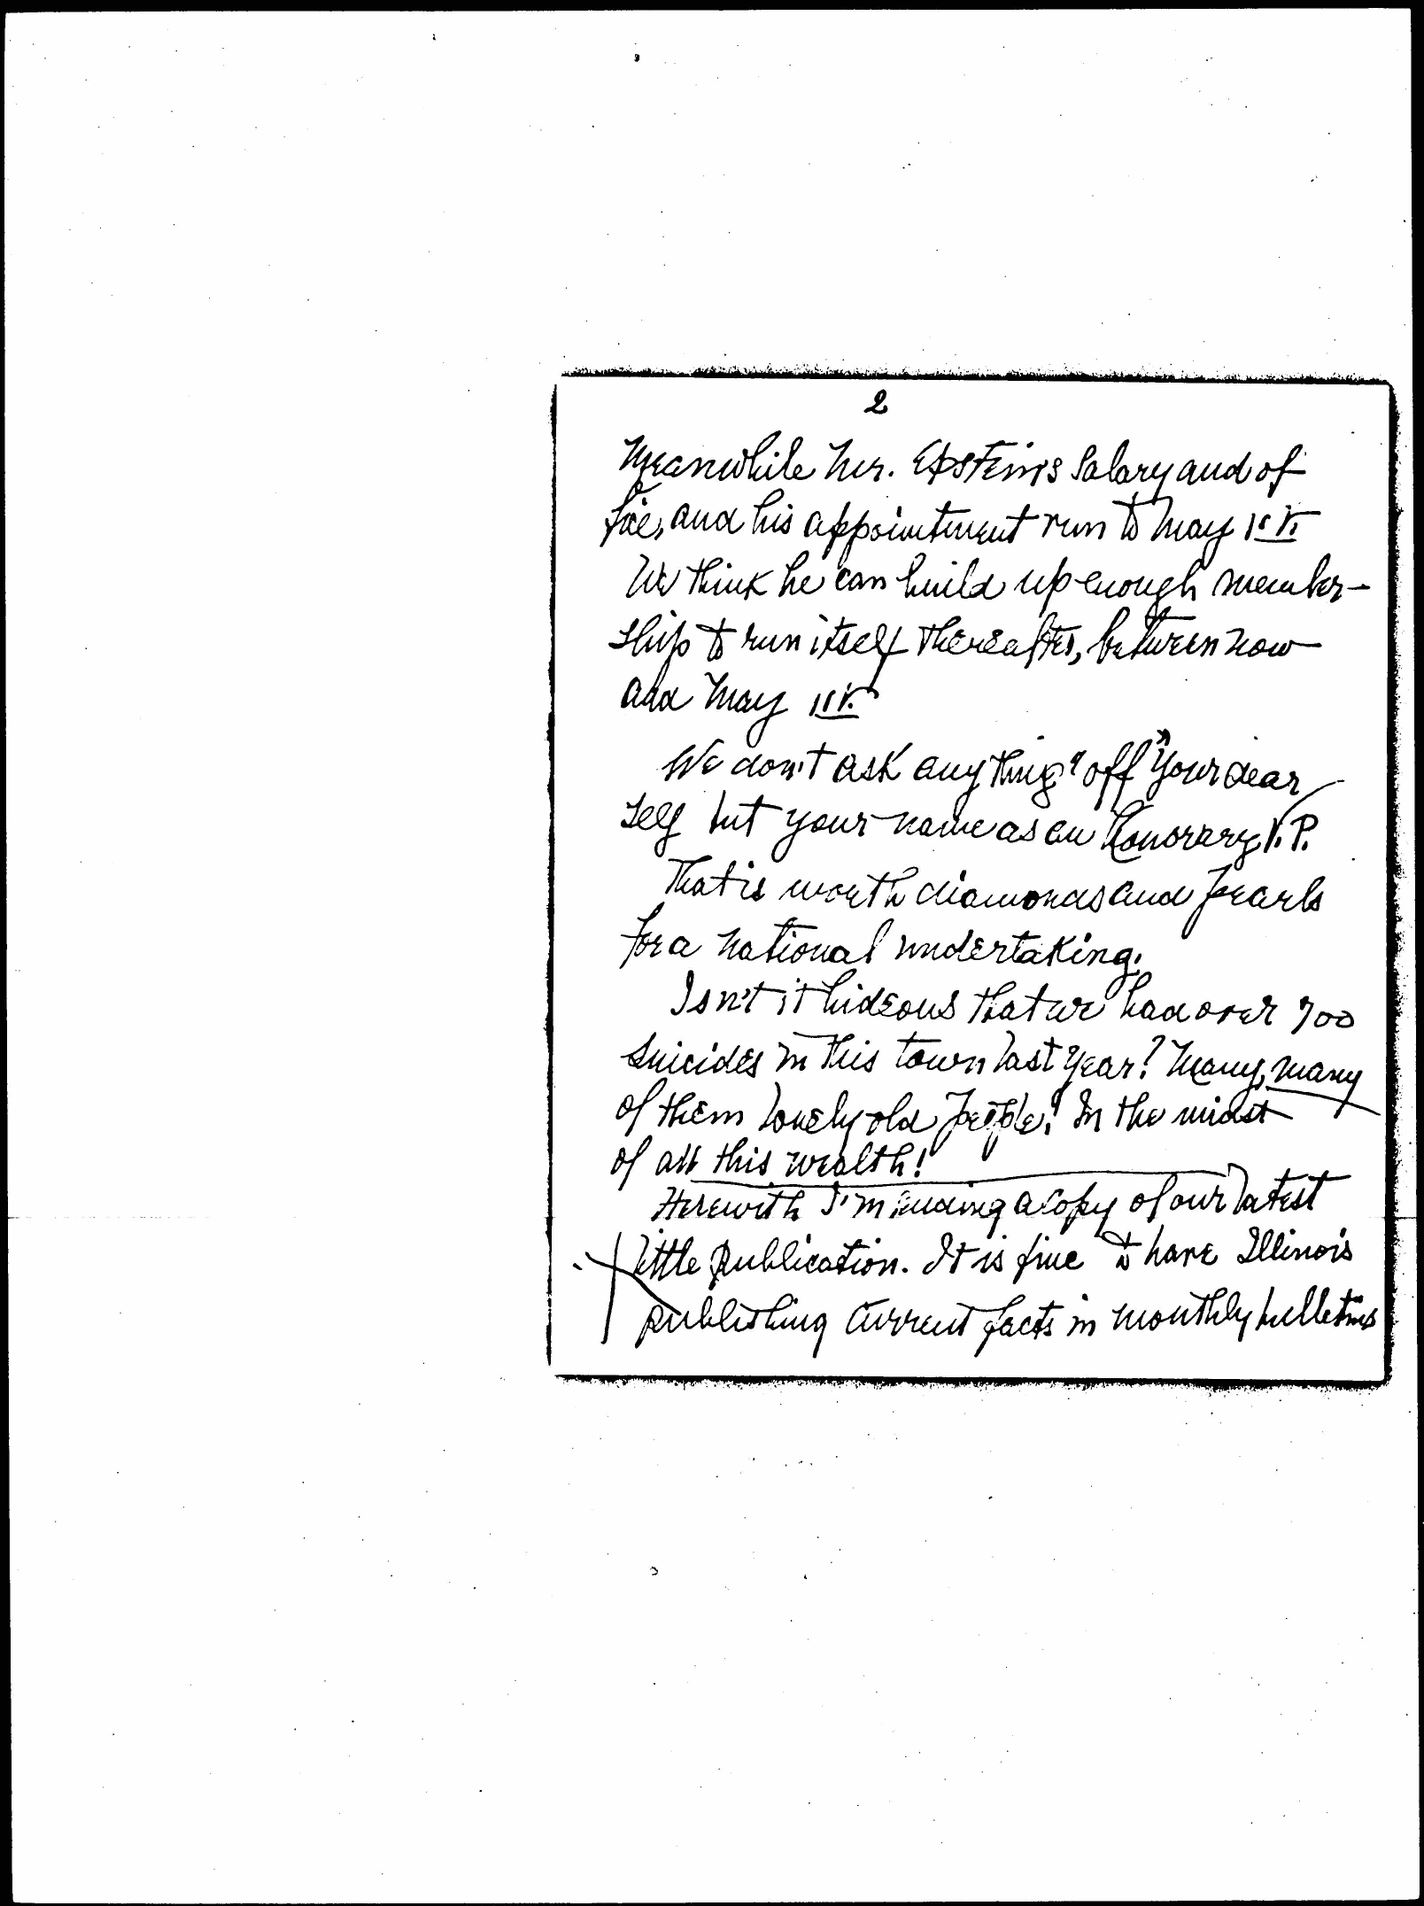 2
Meanwhile Mr. Epstein's salary and of
fice, and his appointment run to May 1st.
We think he can build up enough member-
ship to run itself thereafter, between now
and May 1st.
We don't ask anything "off" your dear
self but your name as an Honorary V.P.
That is worth diamonds and pearls
for a national undertaking.
Isn't it hideous that we had over 700
suicides in this town last year? Many, many
of them lonely old people! In the midst
of all this wealth!
Herewith I'm sending a copy of our latest
little publication. It is fine to have Illinois
publishing current facts in monthly bulletins